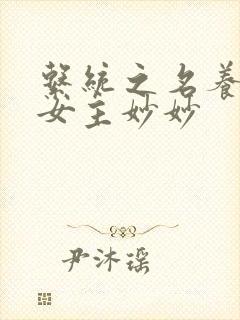 繫統之名養
女主妙妙
尹沐瑶